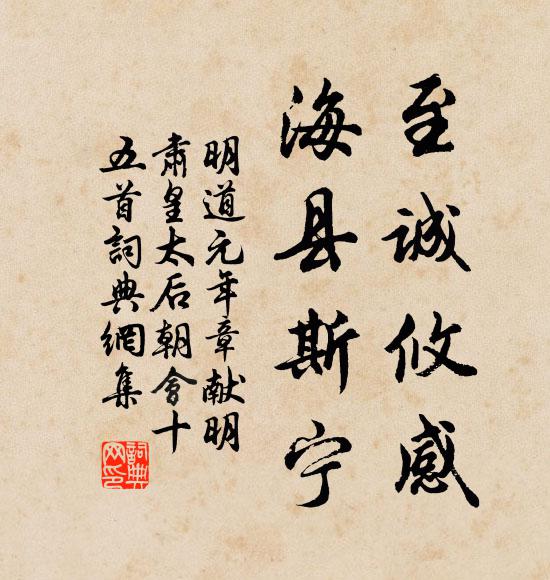 至诚攸感
海县斯宁
明道元年章献明
肃皇太后朝会十
五首詞典網集
詞典
网印